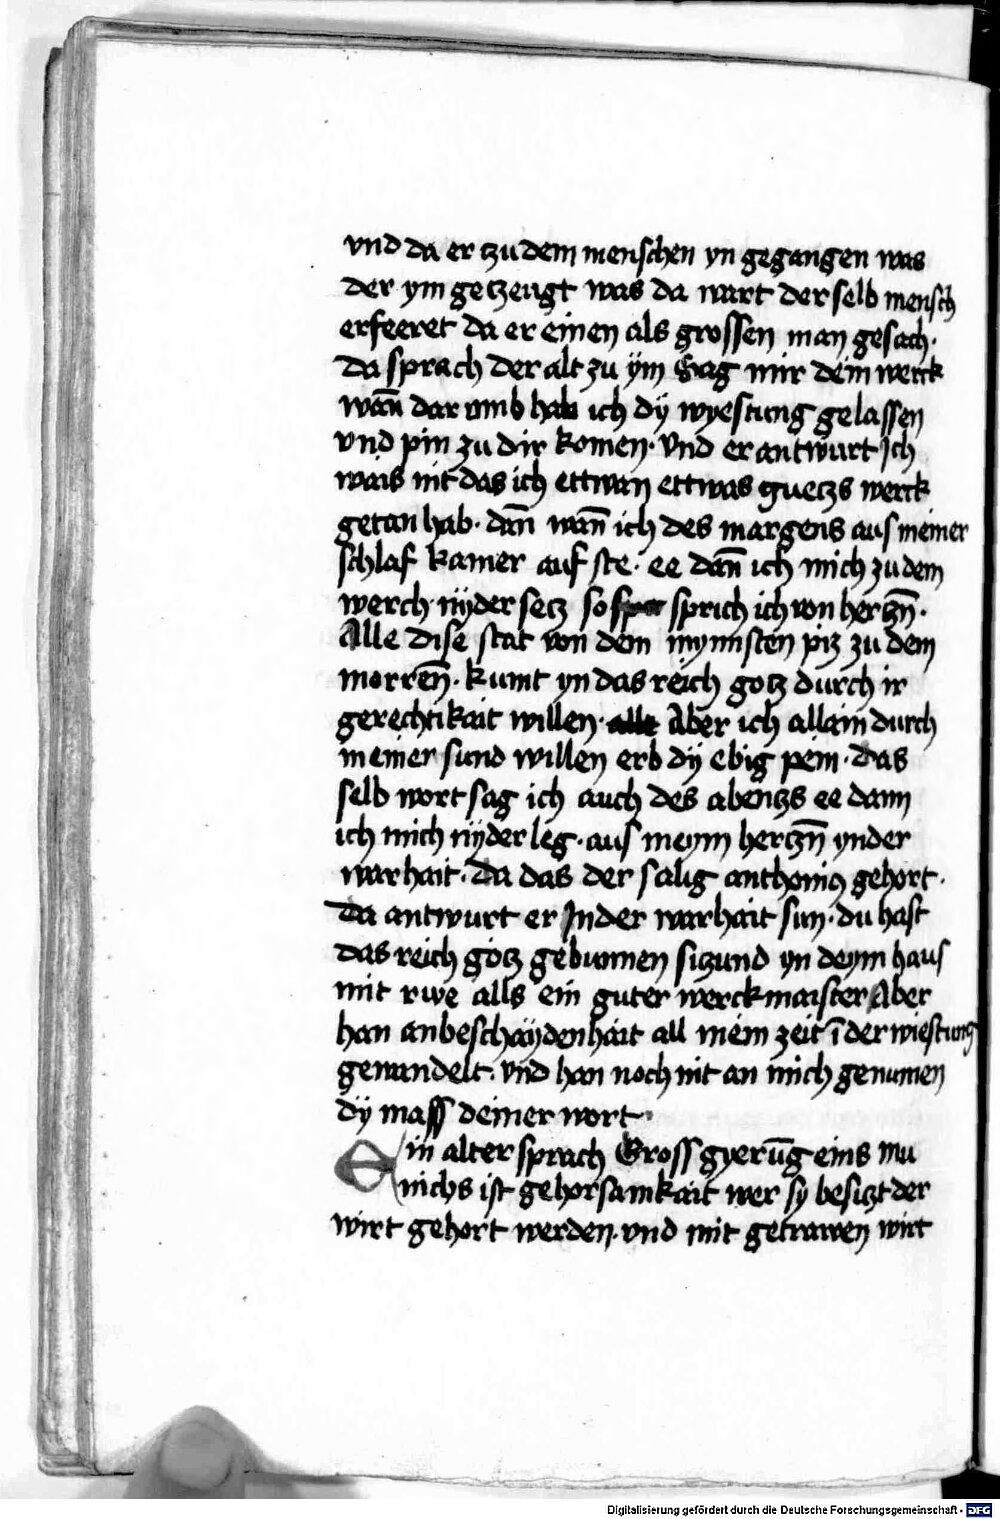 vnd da er tzu dem menschen yn gegangen was
der ym getzeugt was da wart der selb mensch
erfeeret da er einen als grossen man gesach·
da sprach der alt zu ÿm Sag mir dein werck
wan̄ dar vmb hab ich dÿ wyestung gelassen
vnd pin zu dir komen· vnd er antwurt Ich
wais nit das ich ettwan ettwas guetzs werck
getan hab· dan̄ wan̄ ich des margens aus meiner
schlaf kamer auf ste· ee dan̄ ich mich zu dem
werch nÿder setz so sprich ich von hertzn̄·
Alle dise stat von dem mynnsten piz zu dem
merren̄· kumt yn das reich gotz durch ir
gerechtikait willen· Aber ich allein durch
meiner sund willen erb dÿ ebig pein· das
selb wort sag ich auch des abentzs ee dann
ich mich nÿder leg· aus meynn hertzn̄ ynder
warhait· Da das der salig anthonius gehort·
Da antwurt er Inder warhait sun· du hast
das reich gotz gebunnen sitzund yn deym haus
mit rwe alls ein guter werckmaister Aber
han anbeschaÿdenhait all mein zeit ī der wiestung
gewandelt· vnd han noch nit an mich genumen
dÿ mass deiner wort·
Ein alter sprach Gross gyerūg eins mu
nichs ist gehorsamkait wer sy besitzt der
wirt gehort werden· vnd mit getrawen wirt
Digitalisierung gefördert durch die Deutsche Forschungsgemeinschaft - DFG